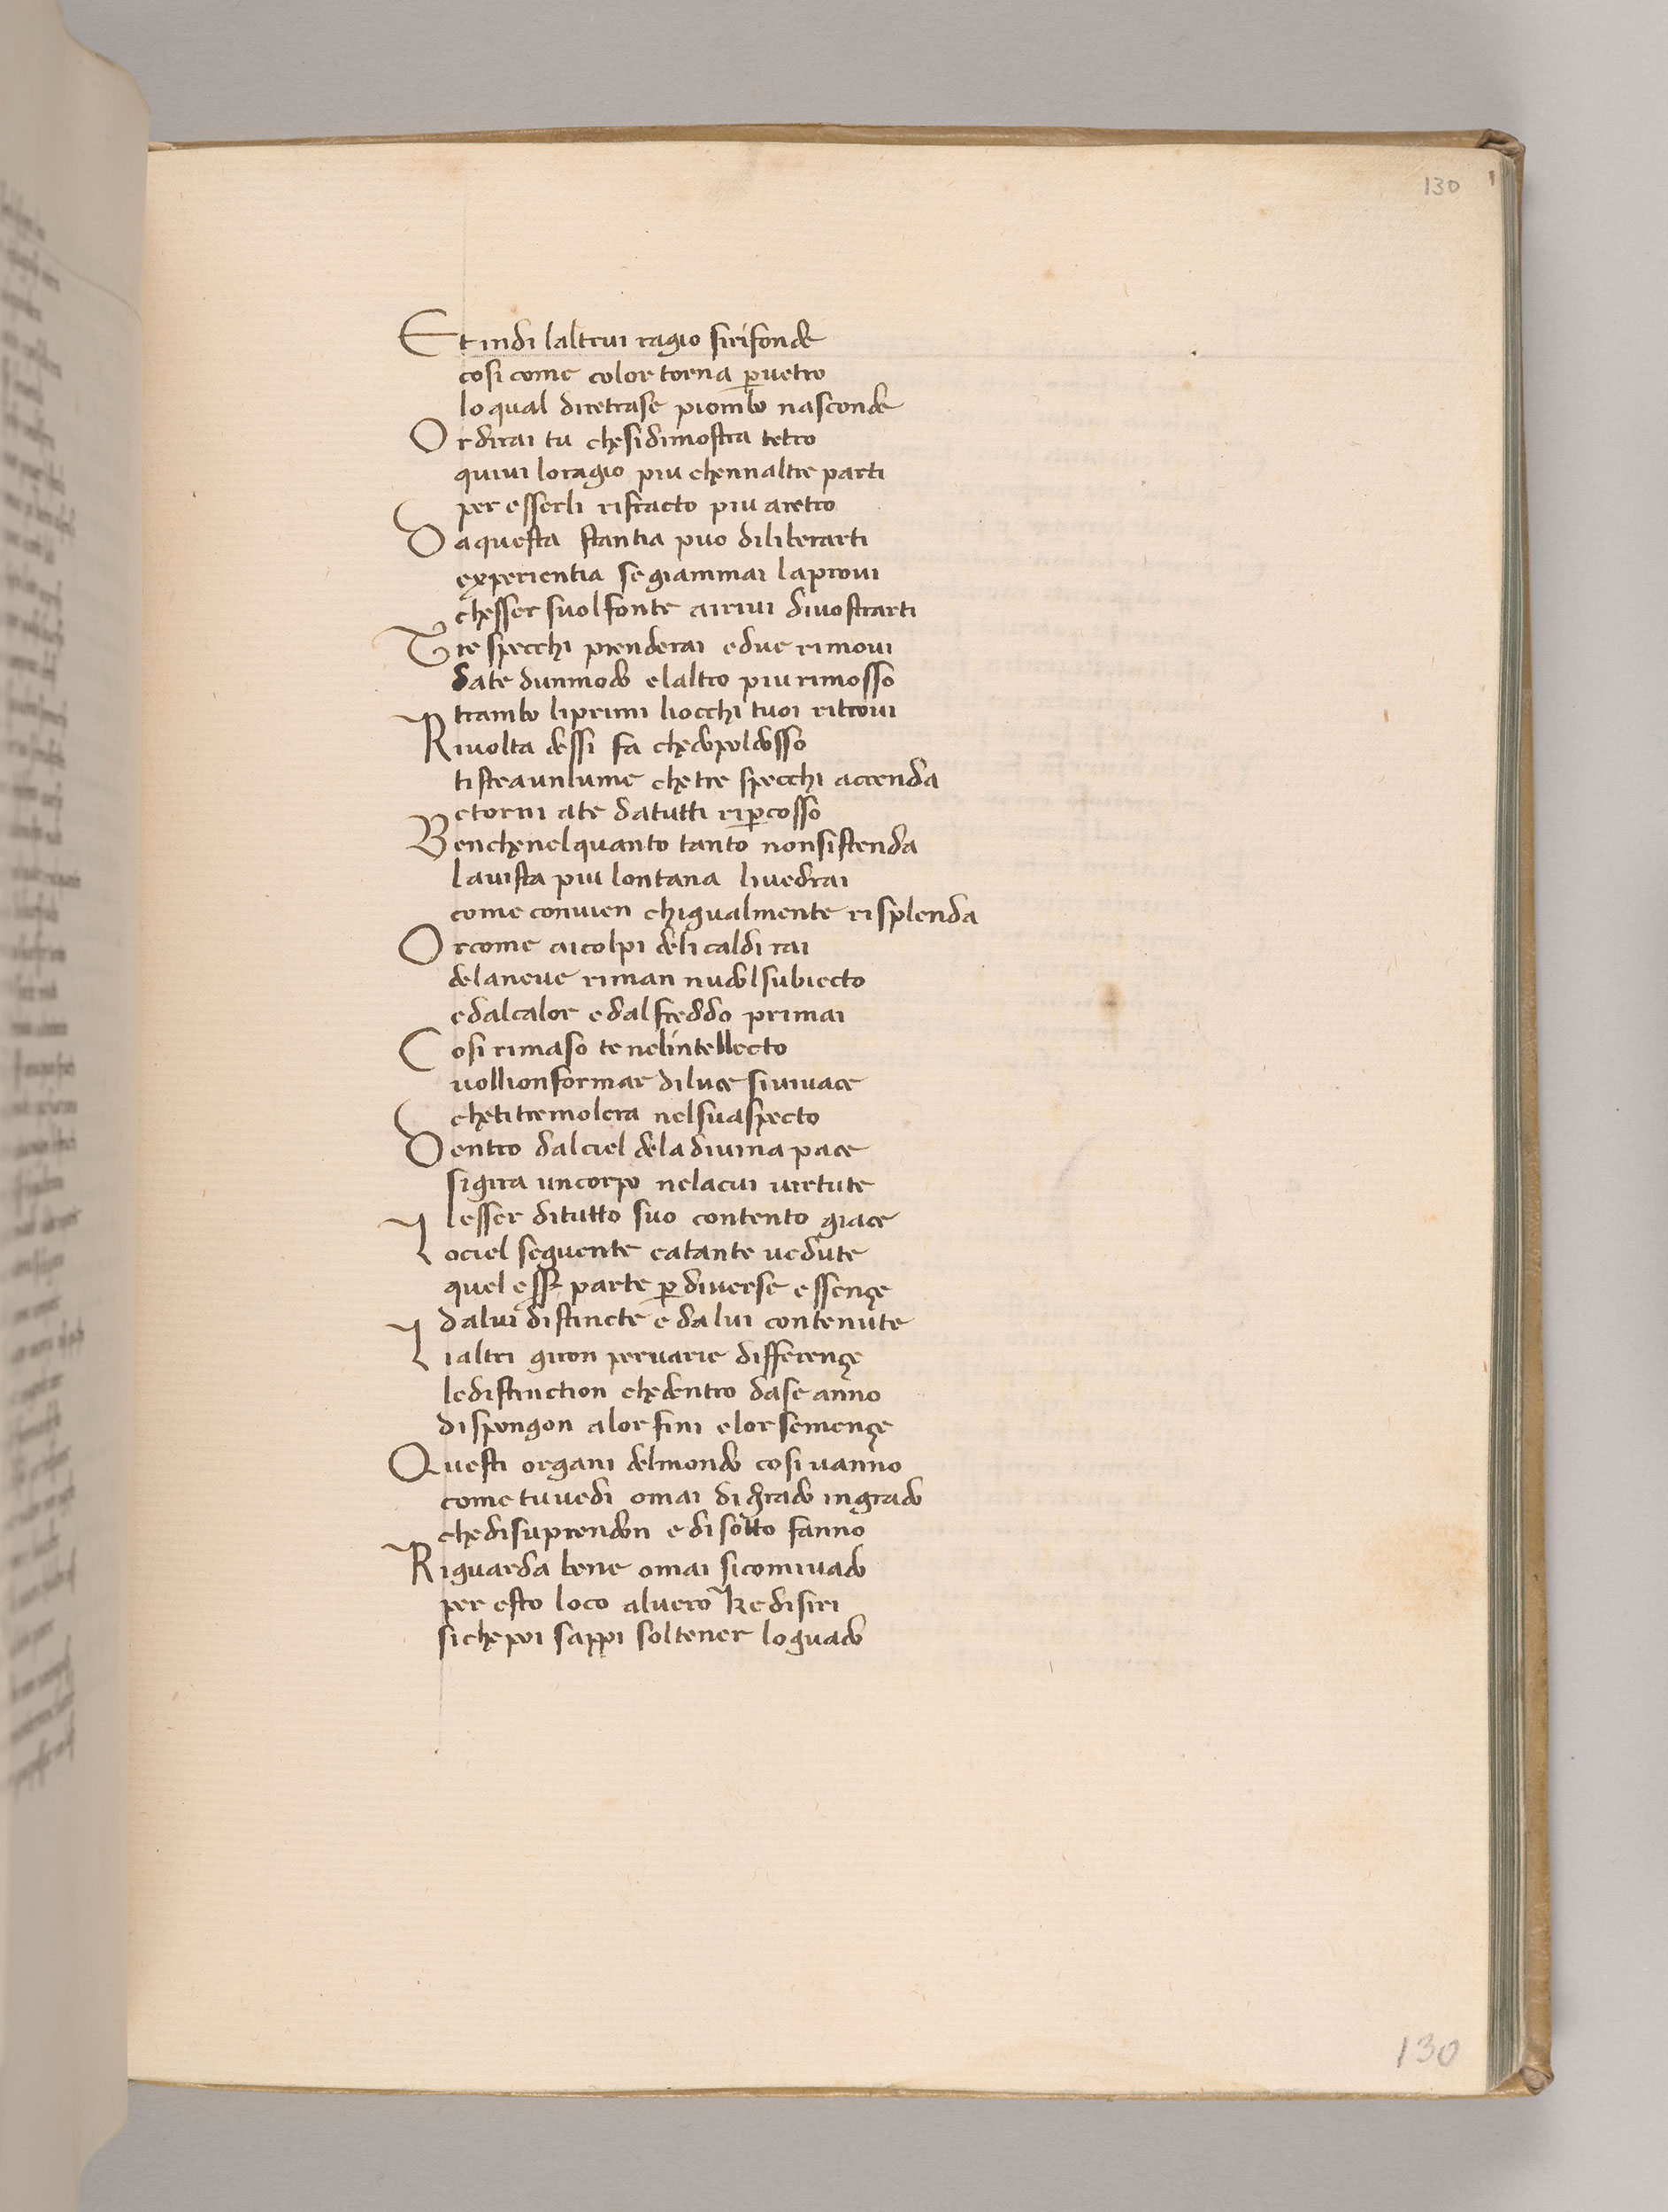 130
Et indi laltrui ragio sirifonde
cosi come color torna ꝑuetro
lo qual diretrase piombo nasconde
Or dirai tu chęsidimostra tetro
quiui loragio piu chęnnaltre parti
per esserli rifracto piu aretro
Da questa stantia puo diliberarti
experientia se giammai laproui
chęsser suol fonte airiui diuostrarti
Tre specchi prenderai edue rimoui
date dunmodo elaltro piu rimosso
trambo liprimi liocchi tuoi ritroui
Riuolta dessi fa chędopoldosso
ti stea unlume chętre specchi accenda
etorni ate datutti riꝑcosso
Benchęnelquanto tanto nonsistenda
lauista piu lontana liuedrai
come conuien chigualmente risplenda
Orcome aicolpi deli caldi rai
delaneue riman nudolsubiecto
edalcalor edalfreddo primai
Cosi rimaso te nelintellecto
uollionformar diluce siuiuace
chętitremolera nelsuaspecto
Dentro dalciel deladiuina pace
sigira uncorpo nelacui uirtute
lesser ditutto suo contento giace
Lociel seguente catante uedute
quel essr parte ꝑdiuerse essençe
dalui distincte edalui contenute
Lialtri giron peruarie differençe
ledistinction chędentro dase anno
dispongon alor fini elor semençe
Questi organi delmondo cosi uanno
come tuuedi omai digrado ingrado
chędisuprendon edisotto fanno
Riguarda bene omai sicomiuado
per esto loco aluero ke disiri
sichępoi sappi soltener loguado
130